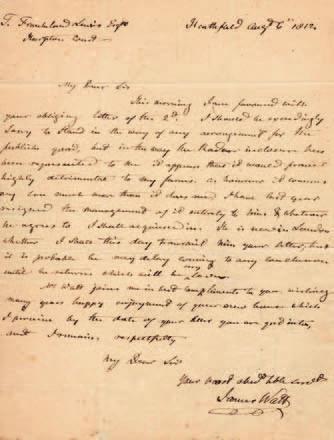 T. Frankland Lewis Esqr
Harpton Court
Heathfield Augt 6th 1812
My Dear Sir
This morning I am favoured with
your obliging letter of the 2d. I should be exceedingly
sorry to stand in the way of any arrangement for the
publick good, but in the way the Radnor inclosure has
been represented to me it appears that it would prove
highly detrimental to my farms. as however it concerns
my son much more than it does me I have last year
resigned the management of it entirely to him & whatever
he agrees to I shall acquiesce in. He is now in London
whether I shall this day transmit him your letter, but
it is probable he may delay coming to any conclusion
until he returns which will be soon
Mrs Watt joins me in best compliments to you wishing
many years happy enjoyment of your new house which
I perceive by the date of your letter you are got into,
and I remain respectfully
My Dear Sir
Your most obedt hble servt
James Watt